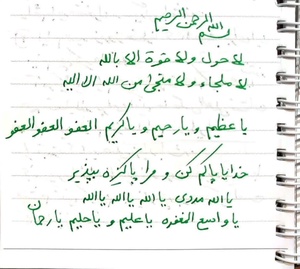 بسم الله الرحمن الرحیم
لا حول ولا قوة الا بالله
لا ملجاء ولا منجی من الله الا الیه
یا عظیم و یا رحیم و یا کریم العفو العفو العفو
خدایا پاکم کن و مرا پاکیزه بپذیر
یا الله مددی یا الله یا الله یا الله
یا واسع المغفره یا علیم و یا حلیم یا رحمان